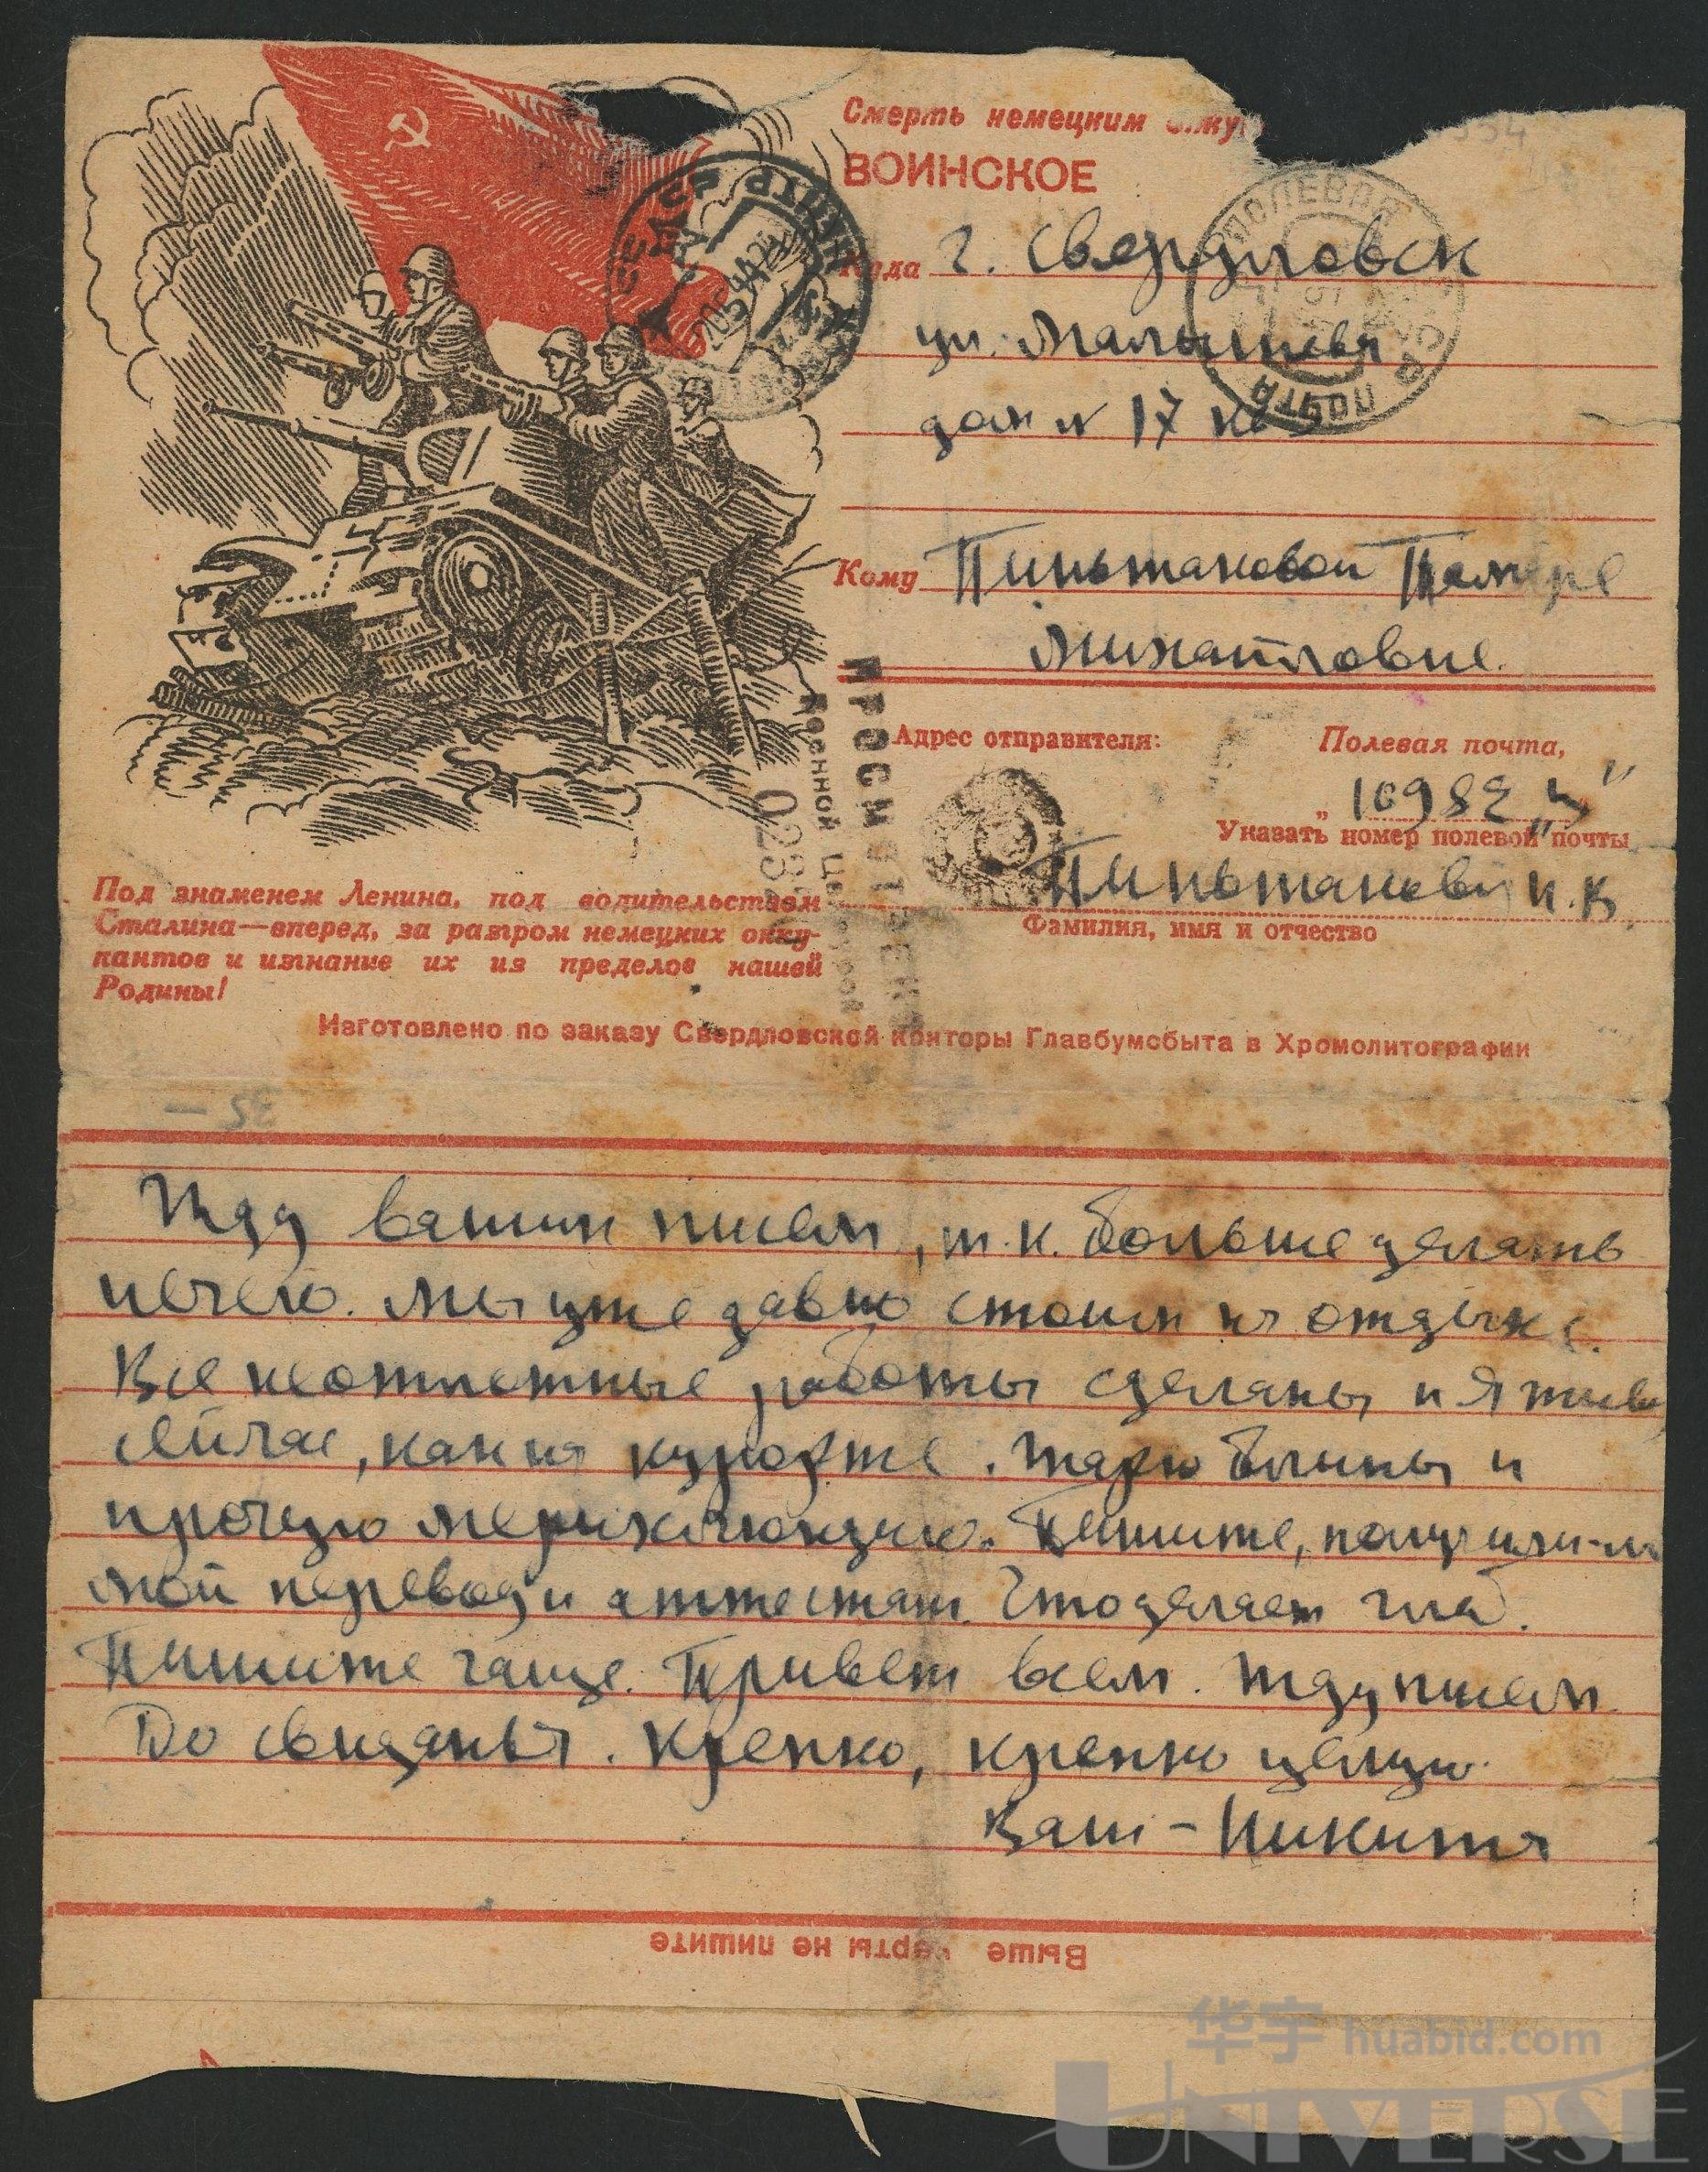 Смерть немецким
ВОИНСКОЕ
Куда г. Свердловск
ул. Малышева
дом № 17 кв 3
Кому Пиньжаковой Тамаре
Михайловне.
Адрес отправителя:
Полевая почта,
Указать номер полевой почты
И.В
Фамилия, имя и отчество
ПОЛЕВАЯ
ПОЧТА
ПРОСМОТРЕНО
Военной Цензурой
Под знаменем Ленина, под водительством
Сталина—вперед, за разгром немецких окку-
пантов и изгнание их из пределов нашей
Родины!
Изготовлено по заказу Свердловской конторы Главбумсбыта в Хромолитографии
Жду ваших писем, т.к. больше делать
нечего. Мы уже давно стоим на отдыхе.
Все неотложные работы сделаны и я живу
сейчас, как на курорте. Жарю блины и
прочую мерихлюндию. Пишите, получили-ли
мой перевод и аттестат. Что делает
Пишите чаще. Привет всем. Жду писем.
До свиданья. Крепко, крепко целую.
Ваш - Никита
Выше черты не пишите
华宇 huabid.com
UNIVERSE